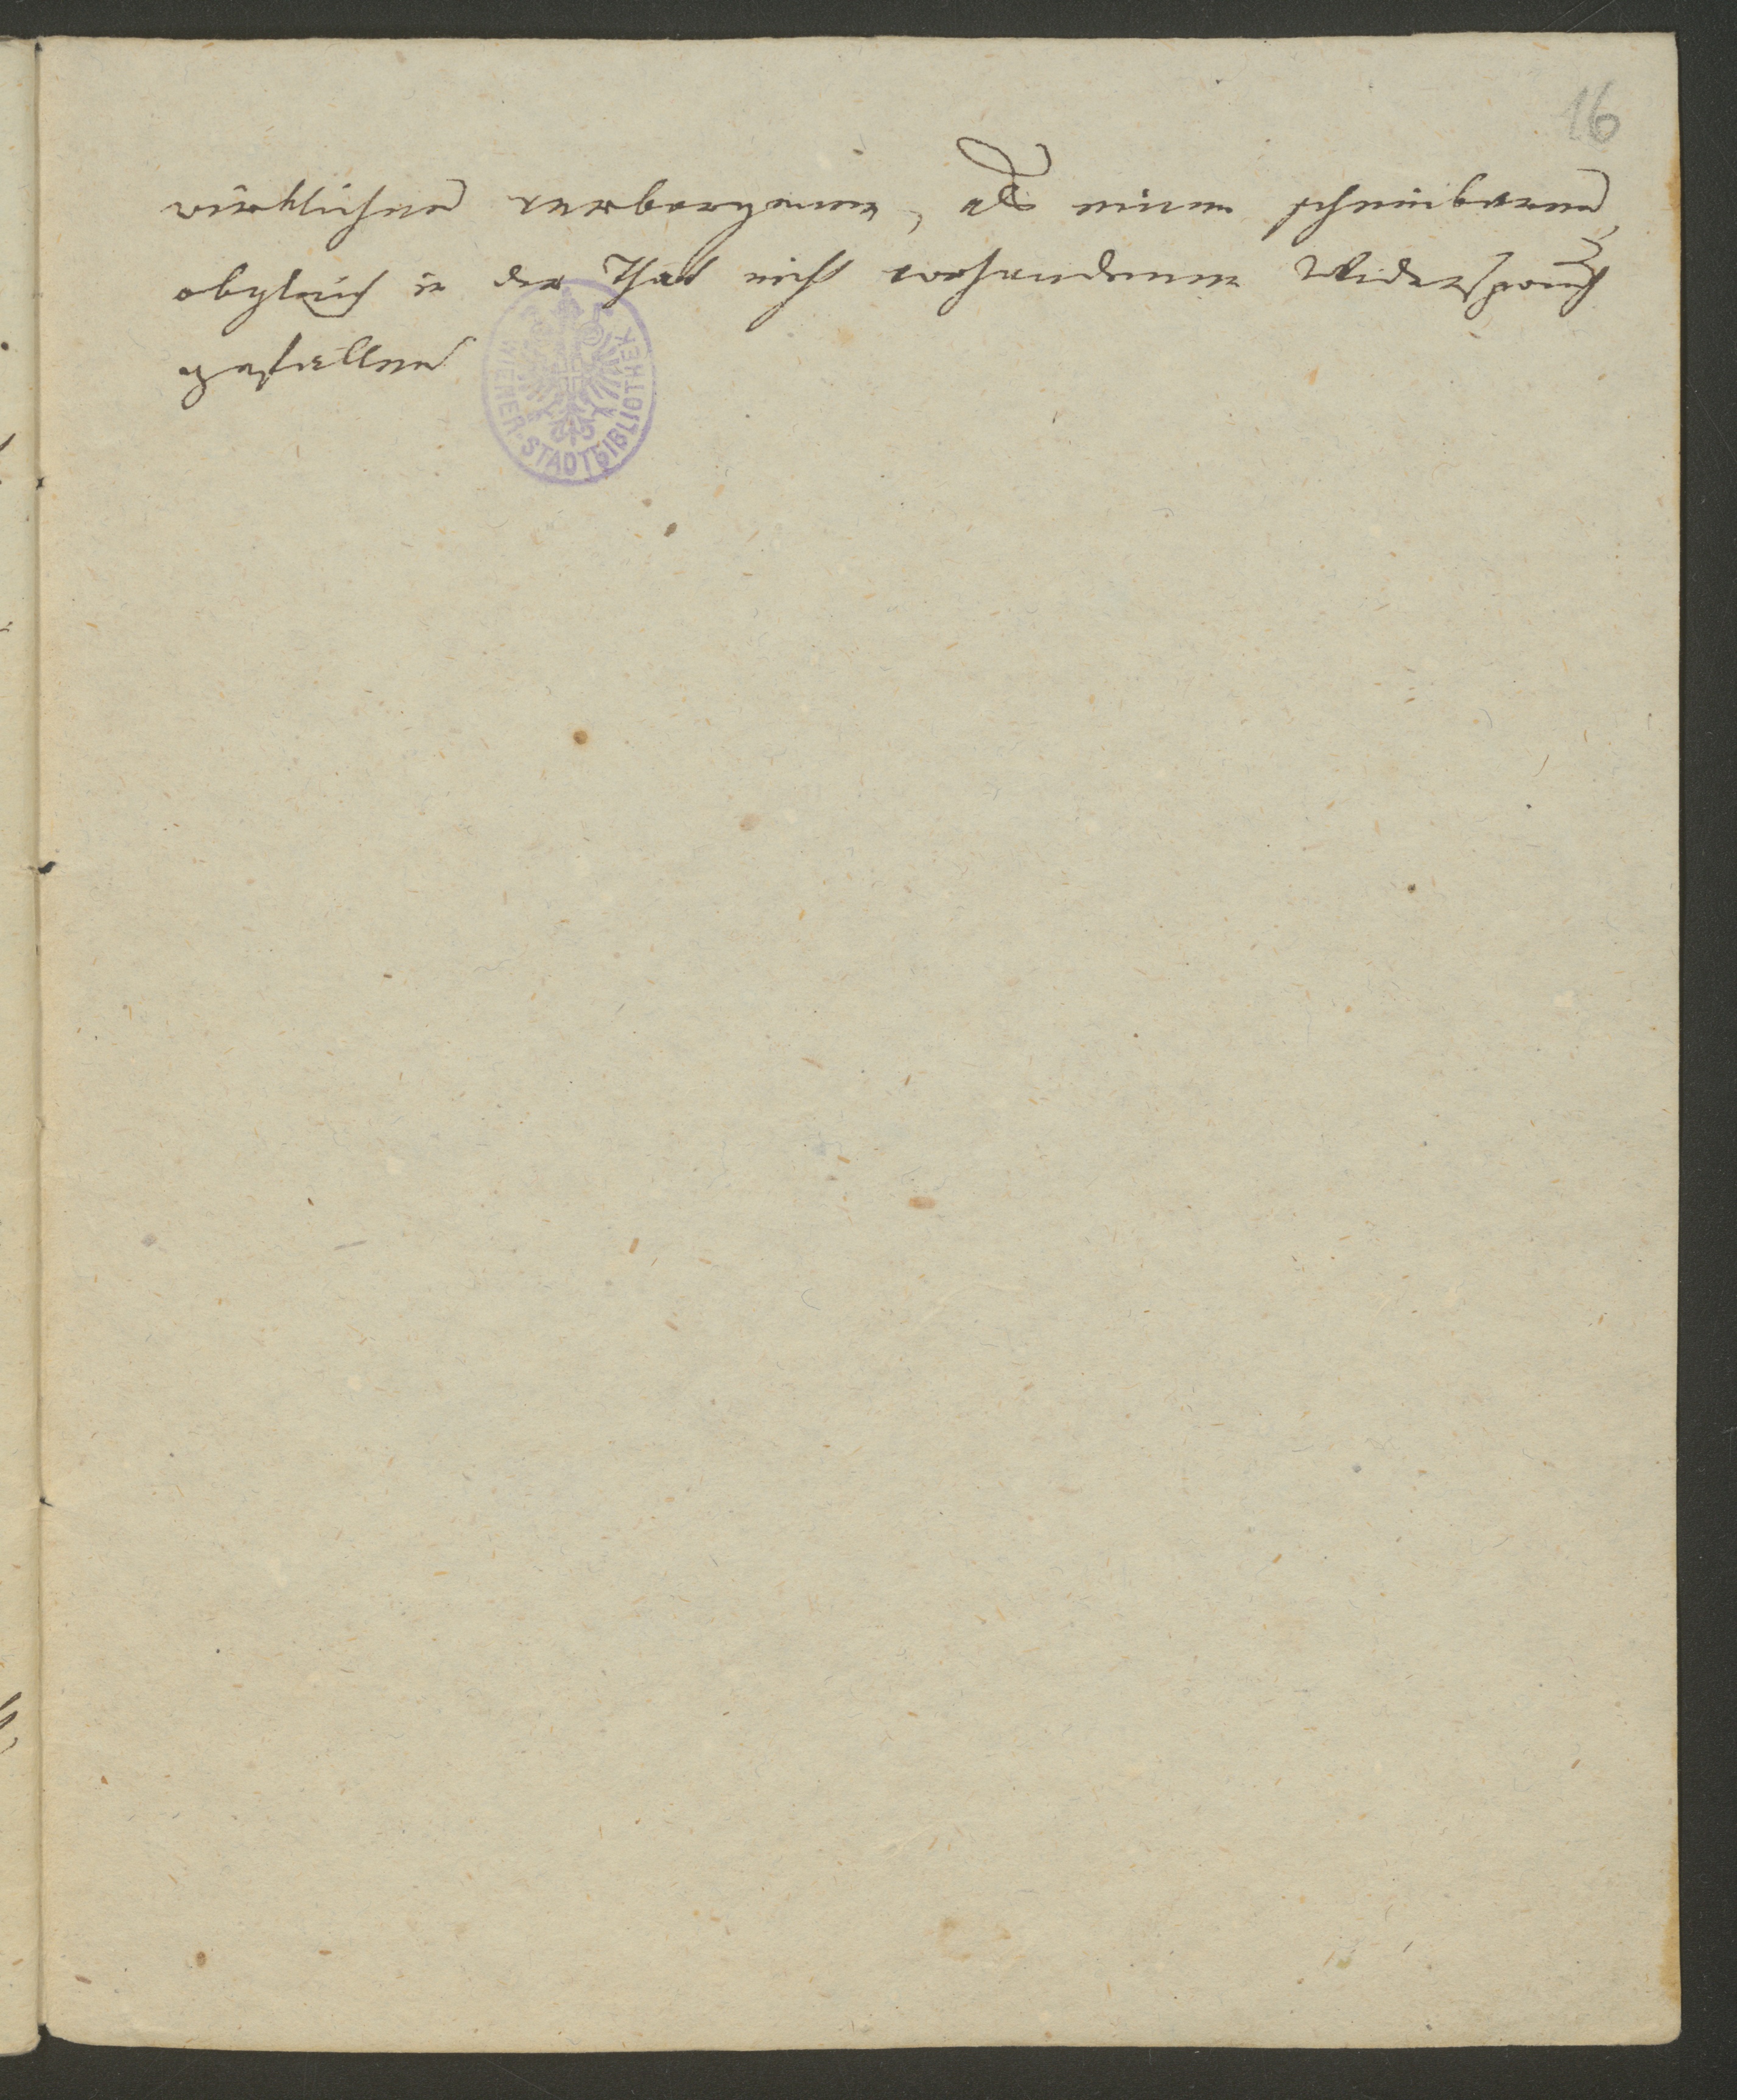 16
wirklichen verborgenen, als einem scheinbaren,
obgleich in der That nicht vorhandenen Widerspruch
gefallen
WIENER STADTBIBLIOTHEK